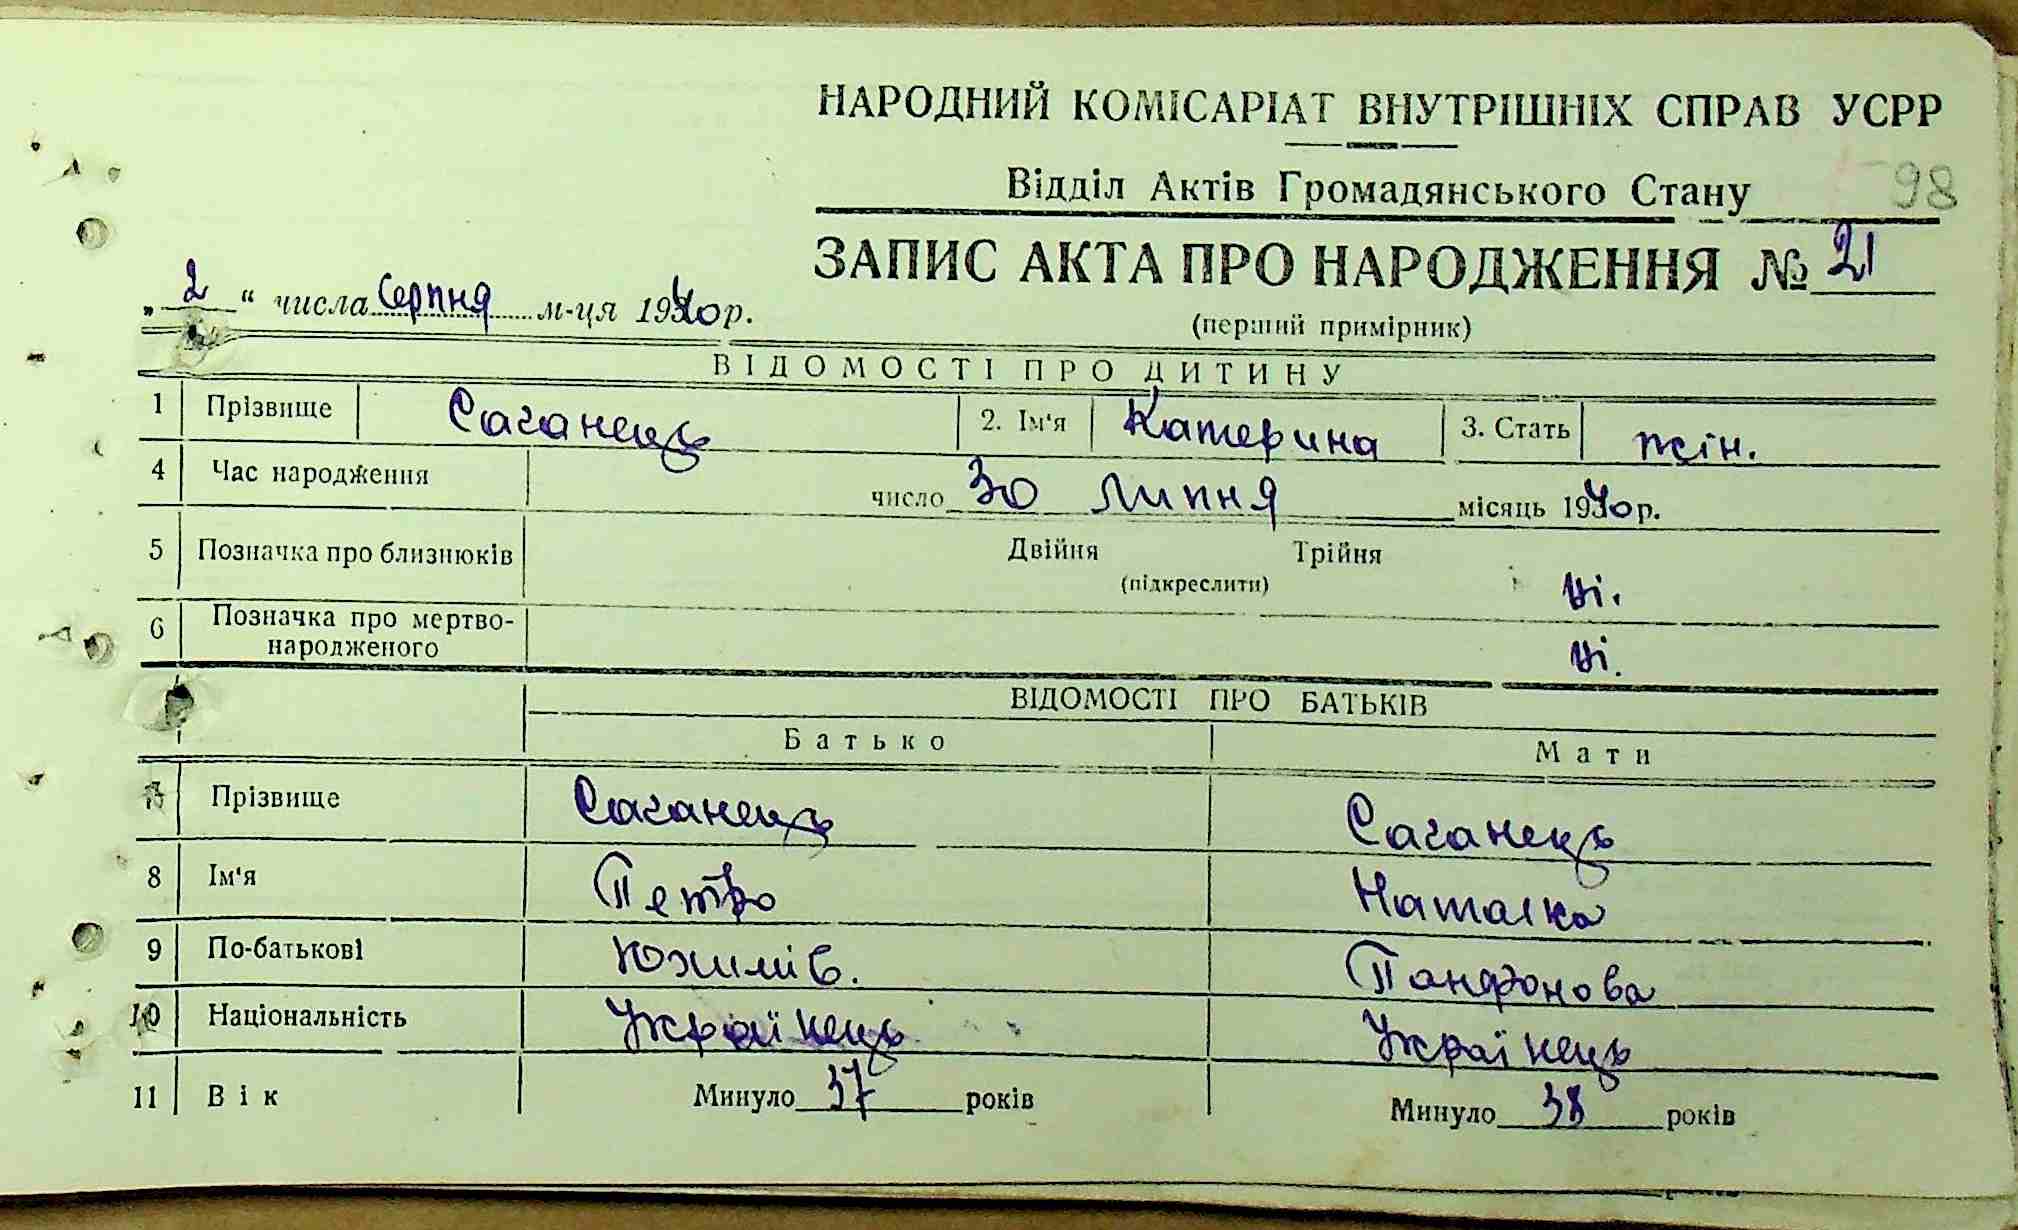 НАРОДНИЙ КОМІСАРІАТ ВНУТРІШНІХ СПРАВ УСРР
Відділ Актів Громадянського Стану 98
ЗАПИС АКТА ПРО НАРОДЖЕННЯ № 21
„ 2 “ числа Серпня м-ця 1940 р.
(перший примірник)
ВІДОМОСТІ ПРО ДИТИНУ
1 Прізвище Саганець 2. Ім'я Катерина 3. Стать жін.
4 Час народження число 30 Липня місяць 1940 р.
5 Позначка про близнюків Двійня Трійня
(підкреслити) ні.
6 Позначка про мертво-
народженого ні.
ВІДОМОСТІ ПРО БАТЬКІВ
Батько Мати
7 Прізвище Саганець Саганець
8 Ім'я Петро Наталка
9 По-батькові Юхимів. Панфонова
10 Національність Українець Українець
11 Вік Минуло 37 років Минуло 38 років